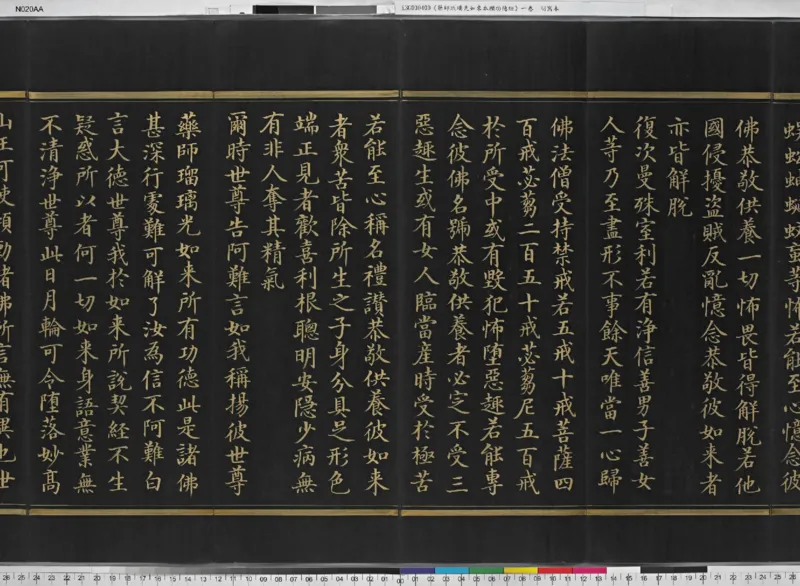 N020AA
蜈蚣蚰蜒蚊䖟等怖若能至心憶念彼
佛恭敬供養一切怖畏皆得解脫若他
國侵擾盜賊反亂憶念恭敬彼如来者
亦皆解脫
復次曼殊室利若有淨信善男子善女
人等乃至盡形不事餘天唯當一心歸
佛法僧受持禁戒若五戒十戒菩薩四
百戒苾蒭二百五十戒苾蒭尼五百戒
於所受中或有毀犯怖墮惡趣若能專
念彼佛名號恭敬供養者必定不受三
惡趣生或有女人臨當產時受於極苦
若能至心稱名禮讚恭敬供養彼如来
者衆苦皆除所生之子身分具足形色
端正見者歡喜利根聰明安隱少病無
有非人奪其精氣
爾時世尊告阿難言如我稱揚彼世尊
藥師瑠璃光如来所有功德此是諸佛
甚深行處難可解了汝為信不阿難白
言大德世尊我於如来所說契經不生
疑惑所以者何一切如来身語意業無
不清淨世尊此日月輪可令墮落妙高
山王可使傾動諸佛所言無有異也世